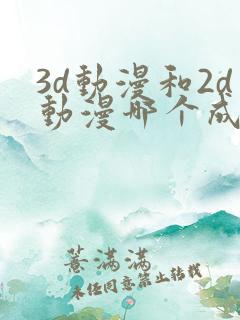 3d動漫和2d
動漫哪个成
薏满满
未任同意禁止转载